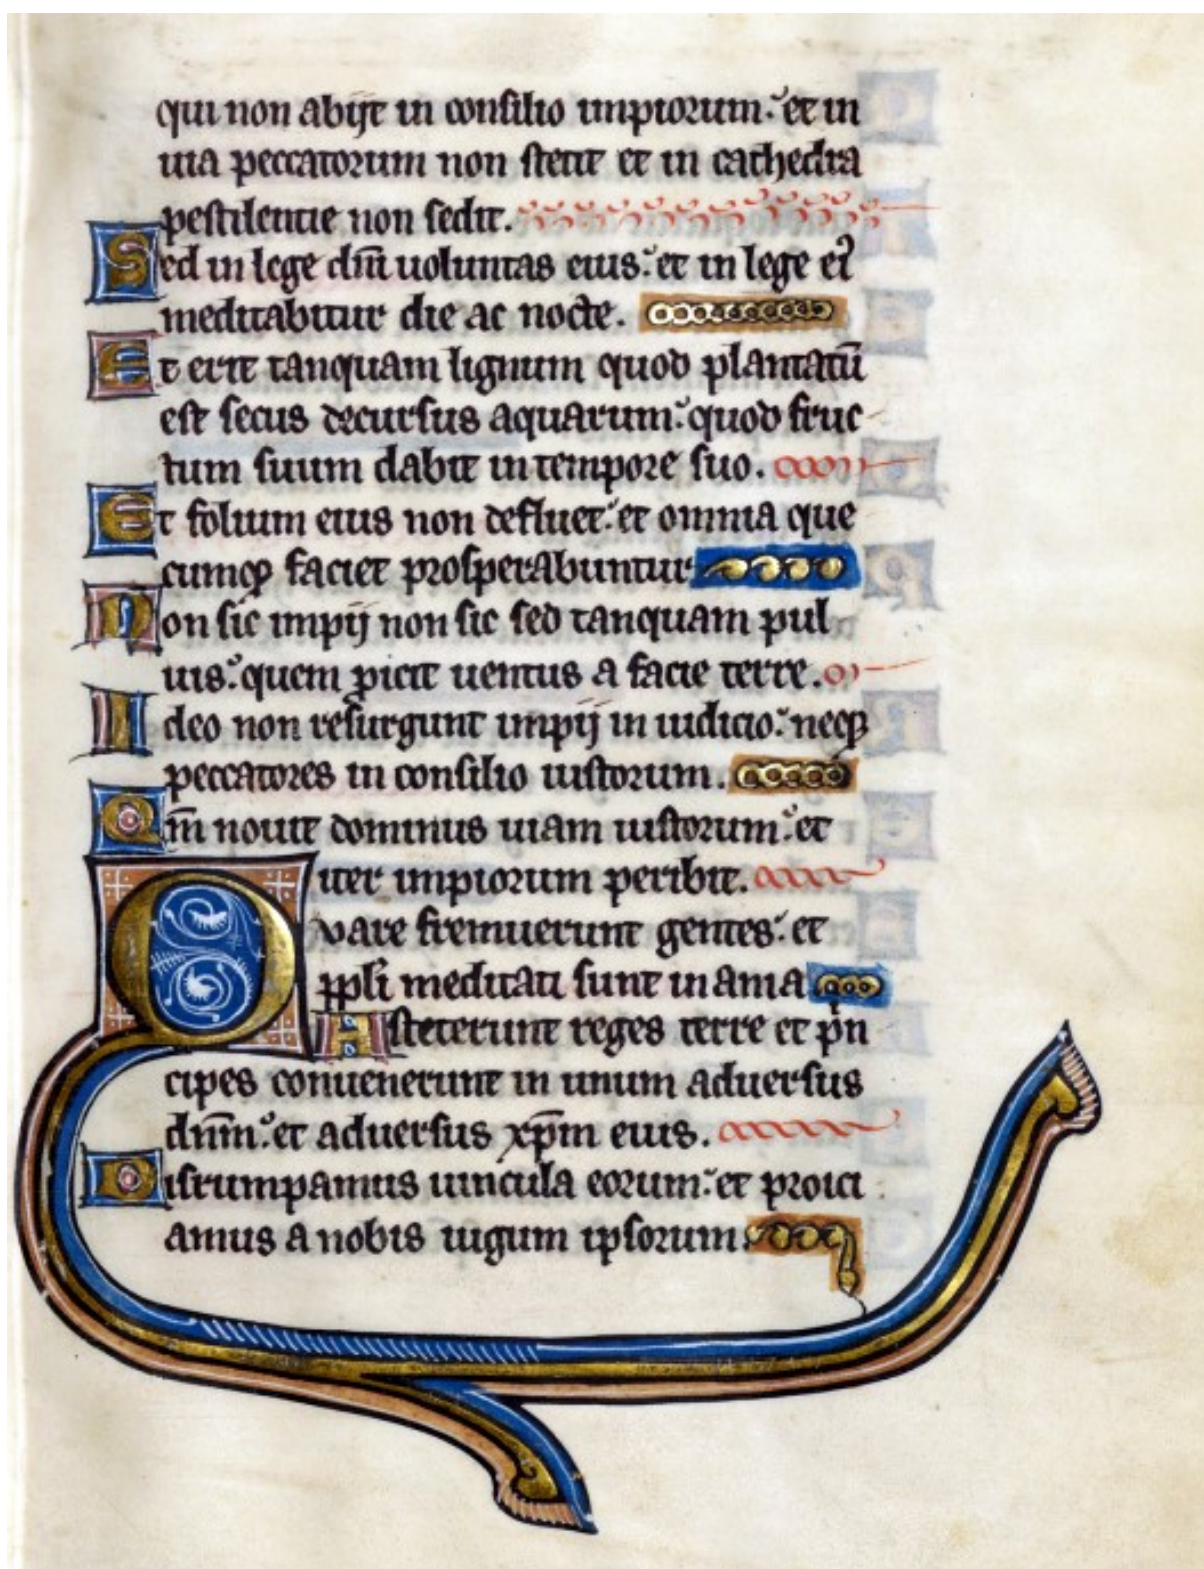 qui non abijt in consilio impiorum: et in
uia peccatorum non stetit et in cathedra
pestilentie non sedit.
Sed in lege dñi uoluntas eius: et in lege ei᷒
meditabitur die ac nocte.
Et erit tanquam lignum quod plantatū
est secus decursus aquarum: quod fruc
tum suum dabit in tempore suo.
Et folium eius non defluet: et omnia que
cumqꝫ faciet prosperabuntur
Non sic impij non sic sed tanquam pul
uis: quem ꝓicit uentus a facie terre.
Ideo non resurgunt impij in iudicio: neqꝫ
peccatores in consilio iustorum.
Qm̄ nouit dominus uiam iustorum: et
iter impiorum peribit.
Quare fremuerunt gentes: et
ppli meditati sunt inania
Asteterunt reges terre et pⁱn
cipes conuenerunt in unum aduersus
dnm̄: et aduersus xp̄m eius.
Disrumpamus uincula eorum: et proici
amus a nobis iugum ipsorum.